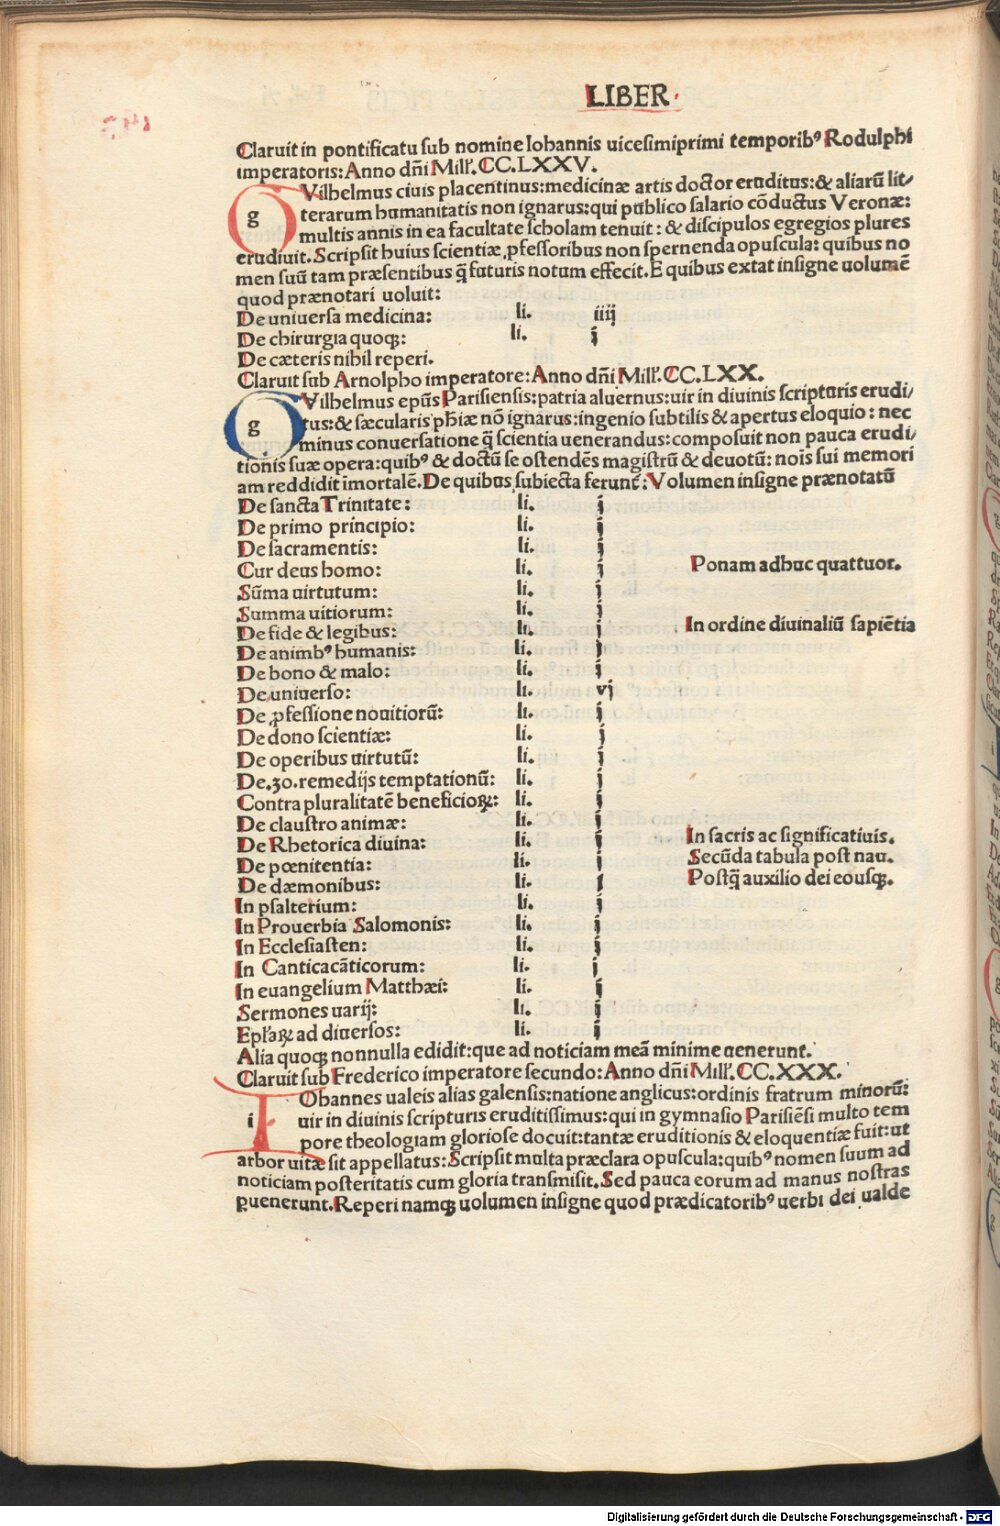 LIBER
Claruit in pontificatu sub nomine Iohannis uicesimiprimi temporibꝰ Rodulphi
imperatoris: Anno dñi Mill'. CC. LXXV.
g Vilhelmus ciuis placentinus: medicinæ artis doctor eruditus: & aliarū lit/
terarum humanitatis non ignarus: qui publico salario cōductus Veronæ:
multis annis in ea facultate scholam tenuit: & discipulos egregios plures
erudiuit. Scripsit huius scientiæ ꝓfessoribus non spernenda opuscula: quibus no
men suū tam præsentibus q̄ futuris notum effecit. E quibus extat insigne uolumē
quod prænotari uoluit:
De uniuersa medicina: li. iiij
De chirurgia quoqꝫ: li. i
De cæteris nihil reperi.
Claruit sub Arnolpho imperatore: Anno dñi Mill'. CC. LXX.
g Vilhelmus ep̄us Parisiensis: patria aluernus: uir in diuinis scripturis erudi/
tus: & sæcularis ph̄iæ nō ignarus: ingenio subtilis & apertus eloquio: nec
minus conuersatione q̄ scientia uenerandus: composuit non pauca erudi/
tionis suæ opera: quibꝰ & doctū se ostendēs magistrū & deuotū: nois sui memori
am reddidit īmortalē. De quibus subiecta ferunt̄: Volumen insigne prænotatū
De sancta Trinitate: li. i
De primo principio: li. i
De sacramentis: li. i
Cur deus homo: li. i Ponam adhuc quattuor.
Sūma uirtutum: li. i
Summa uitiorum: li. i
De fide & legibus: li. i In ordine diuinaliū sapiētia
De animbꝰ humanis: li. i
De bono & malo: li. i
De uniuerso: li. vj
De ꝓfessione nouitiorū: li. i
De dono scientiæ: li. i
De operibus uirtutū: li. i
De .30. remedijs temptationū: li. i
Contra pluralitatē beneficioꝝ: li. i
De claustro animæ: li. i
De Rhetorica diuina: li. i In sacris ac significatiuis.
De pœnitentia: li. i Secūda tabula post nau.
De dæmonibus: li. i Postq̄ auxilio dei eousqꝫ.
In psalterium: li. i
In Prouerbia Salomonis: li. i
In Ecclesiasten: li. i
In Canticacāticorum: li. i
In euangelium Matthæi: li. i
Sermones uarij: li. i
Epl'aꝝ ad diuersos: li. i
Alia quoqꝫ nonnulla edidit: que ad noticiam meā minime uenerunt.
Claruit sub Frederico imperatore secundo: Anno dñi Mill'. CC. XXX.
i Ohannes ualeis alias galensis: natione anglicus: ordinis fratrum minorū:
uir in diuinis scripturis eruditissimus: qui in gymnasio Parisiēsi multo tem
pore theologiam gloriose docuit: tantæ eruditionis & eloquentiæ fuit: ut
arbor uitæ sit appellatus: Scripsit multa præclara opuscula: quibꝰ nomen suum ad
noticiam posteritatis cum gloria transmisit. Sed pauca eorum ad manus nostras
ꝑuenerunt. Reperi namqꝫ uolumen insigne quod prædicatoribꝰ uerbi dei ualde
Digitalisierung gefördert durch die Deutsche Forschungsgemeinschaft - DFG